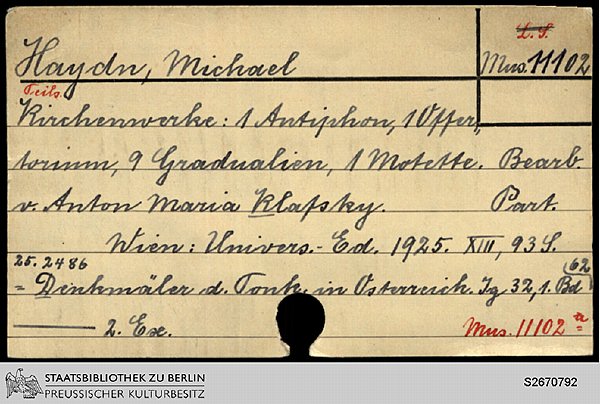 L. S.
Haydn, Michael
Mus. 11102
Teils.
Kirchenwerke: 1 Antiphon, 1 Offer-
torium, 9 Gradualien, 1 Motette. Bearb.
v. Anton Maria Klafsky. Part.
Wien: Univers.-Ed. 1925. XIII, 93 S.
25. 2486
= Denkmäler d. Tonk. in Österreich. Jg 32, 1. Bd
(62)
2. Ex.
Mus. 11102 a
STAATSBIBLIOTHEK ZU BERLIN
PREUSSISCHER KULTURBESITZ
S2670792